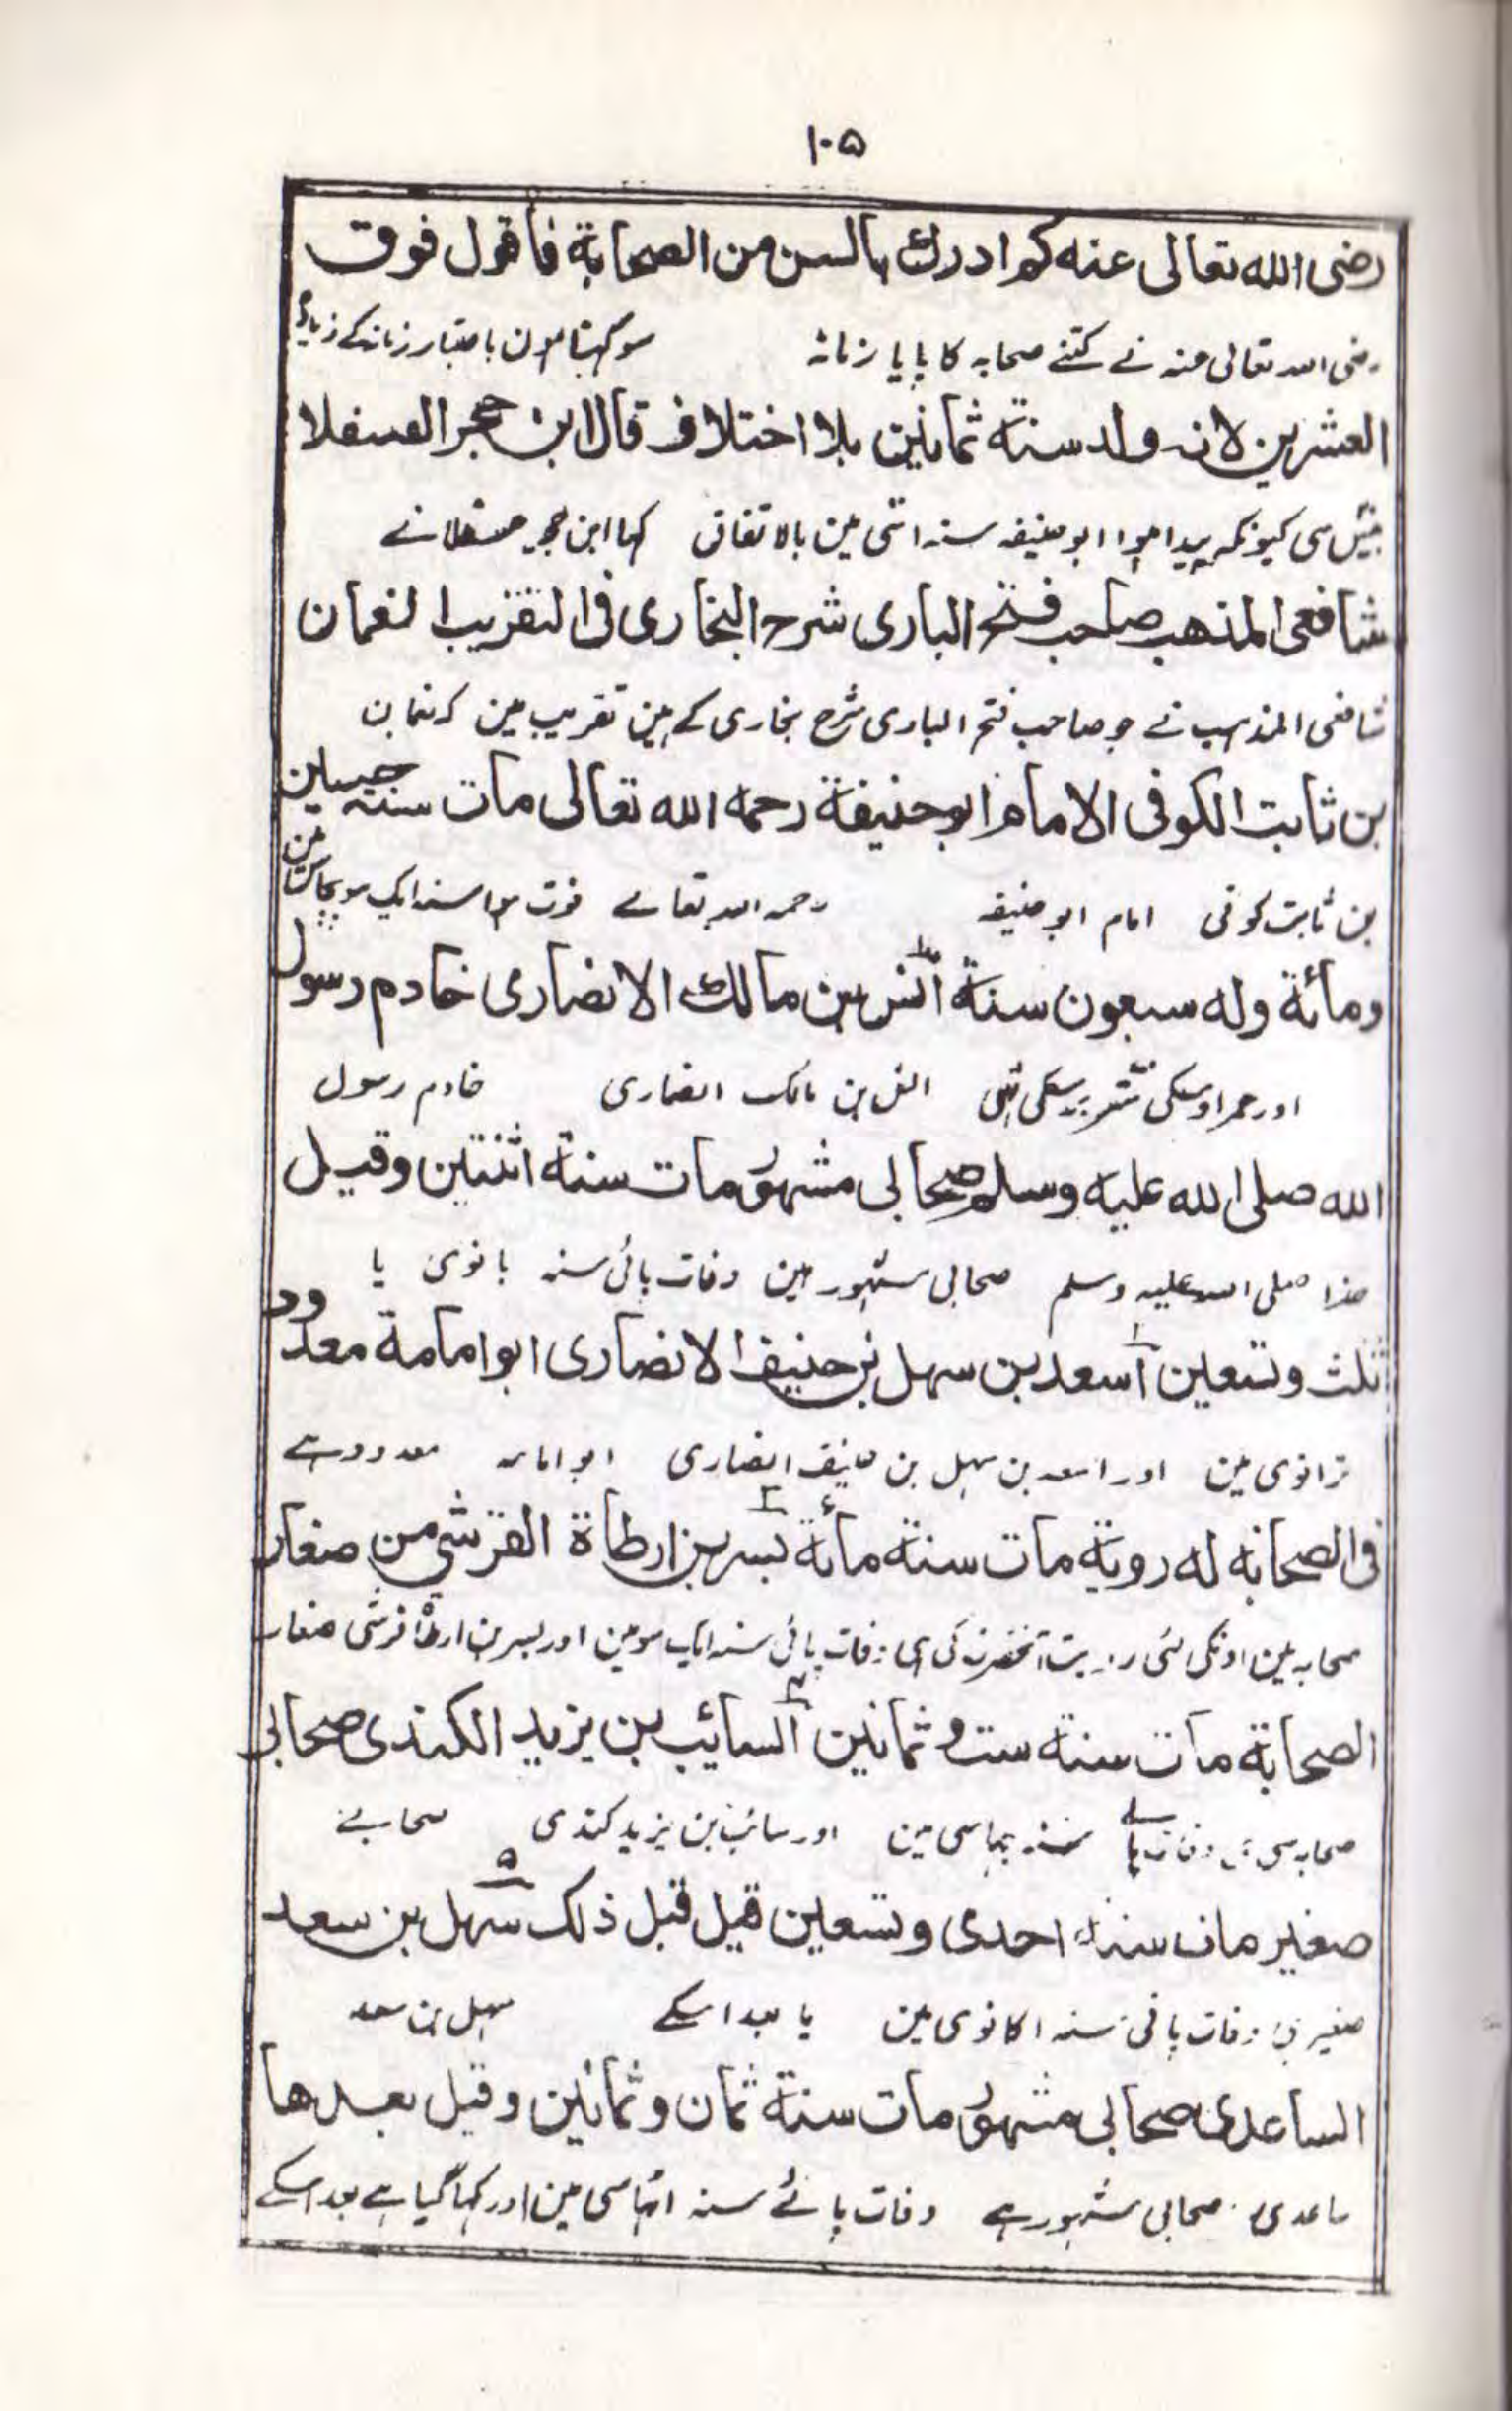 ١٠٥
رضى الله تعالى عنه كم ادرك بالسن من الصحابة فاقول فوق
رضی اللہ تعالی عنہ نے کتنے صحابہ کا پایا زمانہ سو کہتا ہون باعتبار زمانہ کے زیادہ
العشرين لانه ولد سنة ثمانين بلا اختلاف قال ابن حجر العسقلا
بیس سی کیونکہ پیدا ہوا ابو حنیفہ سنہ اسّی مین بالاتفاق کہا ابن حجر عسقلانے
شافعى المذهب صاحب فتح البارى شرح البخارى فى التقريب النعمان
شافعی المذہب نے جو صاحب فتح الباری شرح بخاری کے ہین تقریب مین کہ نعمان
بن ثابت الكوفى الامام ابو حنيفة رحمه الله تعالى مات سنة خمسين
بن ثابت کوفی امام ابو حنیفہ رحمہ اللہ تعالے فوت ہوا سنہ ایک سو پچاس مین
ومائة وله سبعون سنة انس بن مالك الانصارى خادم رسول
اور عمر اوسکی ستّر برسکی تہی انس بن مالک انصاری خادم رسول
الله صلى الله عليه وسلم صحابى مشهور مات سنة اثنتين وقيل
خدا صلی اللہ علیہ وسلم صحابی مشہور ہین وفات پائی سنہ بانوی یا
ثلث وتسعين ١ اسعد بن سهل بن حنيف الانصارى ابو امامة معدود
ترانوی مین اور اسعد بن سہل بن حنیف انصاری ابو امامہ معدود ہے
فى الصحابه له روية مات سنة مائة ٢ بسر بن ارطاة القرشى من صغار
صحابہ مین اونکی لئی رویت آنحضرت کی ہی وفات پائی سنہ ایک سو مین اور بسر بن ارطاۃ قرشی صغار
الصحابة مات سنة ست وثمانين السائب بن يزيد الكندى صحابى
صحابہ سی ہین وفات پائے سنہ چہاسی مین اور سائب بن یزید کندی صحابے
صغير مات سنة احدى وتسعين قيل قبل ذلك ٥ سهل بن سعد
صغیر ہین وفات پائی سنہ اکانوی مین یا بعد اسکے سہل بن سعد
الساعدى صحابى مشهور مات سنة ثمان وثمانين وقيل بعدها
ساعدی صحابی مشہور ہے وفات پائے سنہ اٹہاسی مین اور کہا گیا ہے بعد اسکے